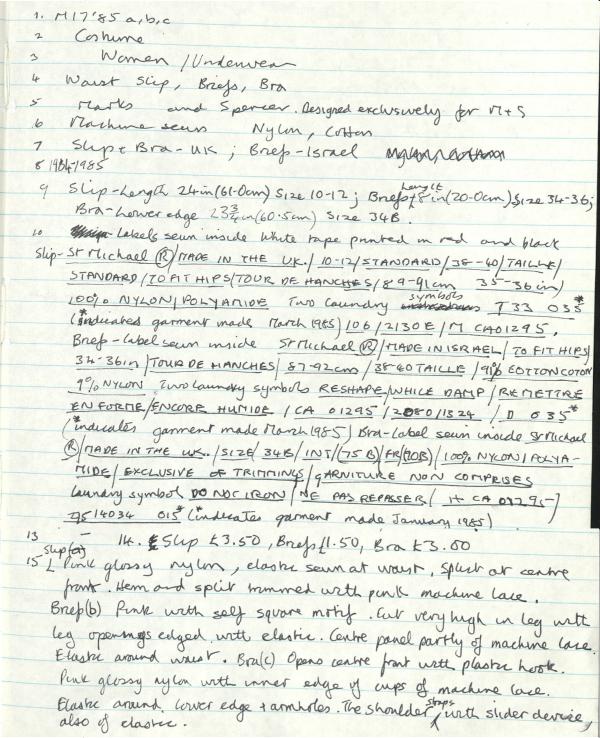 1. M17'85 a,b,c
2 Costume
3 Women / Underwear
4 Waist Slip, Briefs, Bra
5 Marks and Spencer. Designed exclusively for M+S
6 Machine sewn Nylon, Cotton
7 Slip + Bra - UK ; Briefs - Israel
8 1984-1985
9 Slip - Length 24in (61·0cm) Size 10-12 ; Briefs Length 8in (20·0cm) Size 34-36;
Bra - Lower edge 23¾in (60·5cm) Size 34B.
10 Labels sewn inside white tape printed in red and black
Slip - St Michael ® / MADE IN THE U.K. / 10-12 / STANDARD / 38-40 / TAILLE /
STANDARD / TO FIT HIPS / TOUR DE HANCHES / 89-91cm 35-36in /
100% NYLON / POLYAMIDE Two laundry symbols T33 035*
(*indicates garment made March 1985) 106 / 2130E / M CA01295.
Briefs - label sewn inside St Michael ® / MADE IN ISRAEL / TO FIT HIPS /
34-36in / TOUR DE HANCHES / 87-92cm / 38-40 TAILLE / 91% COTTON COTON
9% NYLON Two laundry symbols RESHAPE / WHILE DAMP / REMETTRE
EN FORME / ENCORE HUMIDE / CA 01295 / 2080 / 1324 / D 035*
(*indicates garment made March 1985) Bra - label sewn inside St Michael
® / MADE IN THE UK. / SIZE / 34B / INT / (75B) FR (90B) / 100% NYLON / POLYA-
MIDE / EXCLUSIVE OF TRIMMINGS / GARNITURE NON COMPRISES
laundry symbol DO NOT IRON / NE PAS REPASSER / CA 01295 -
14034 015* (*indicates garment made January 1985)
13 14. Slip £3.50, Briefs £1.50, Bra £3.00
15 Slip (a) Pink glossy nylon, elastic sewn at waist, Split at centre
front. Hem and split trimmed with pink machine lace.
Briefs (b) Pink with self square motif. Cut very high in leg with
leg openings edged with elastic. Centre panel partly of machine lace.
Elastic around waist. Bra (c) Opens centre front with plastic hook.
Pink glossy nylon with inner edge of cups of machine lace.
Elastic around lower edge + armholes. The shoulder straps, with slider device,
also of elastic.